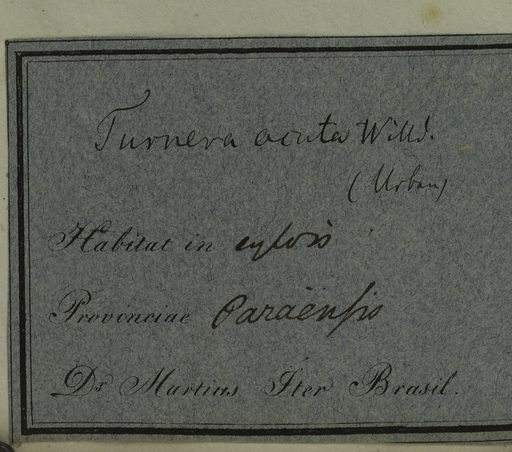 Turnera acuta Willd.
(Urban)
Habitat in sylvis
Provinciae Paraënsis
Dr. Martius Iter Brasil.